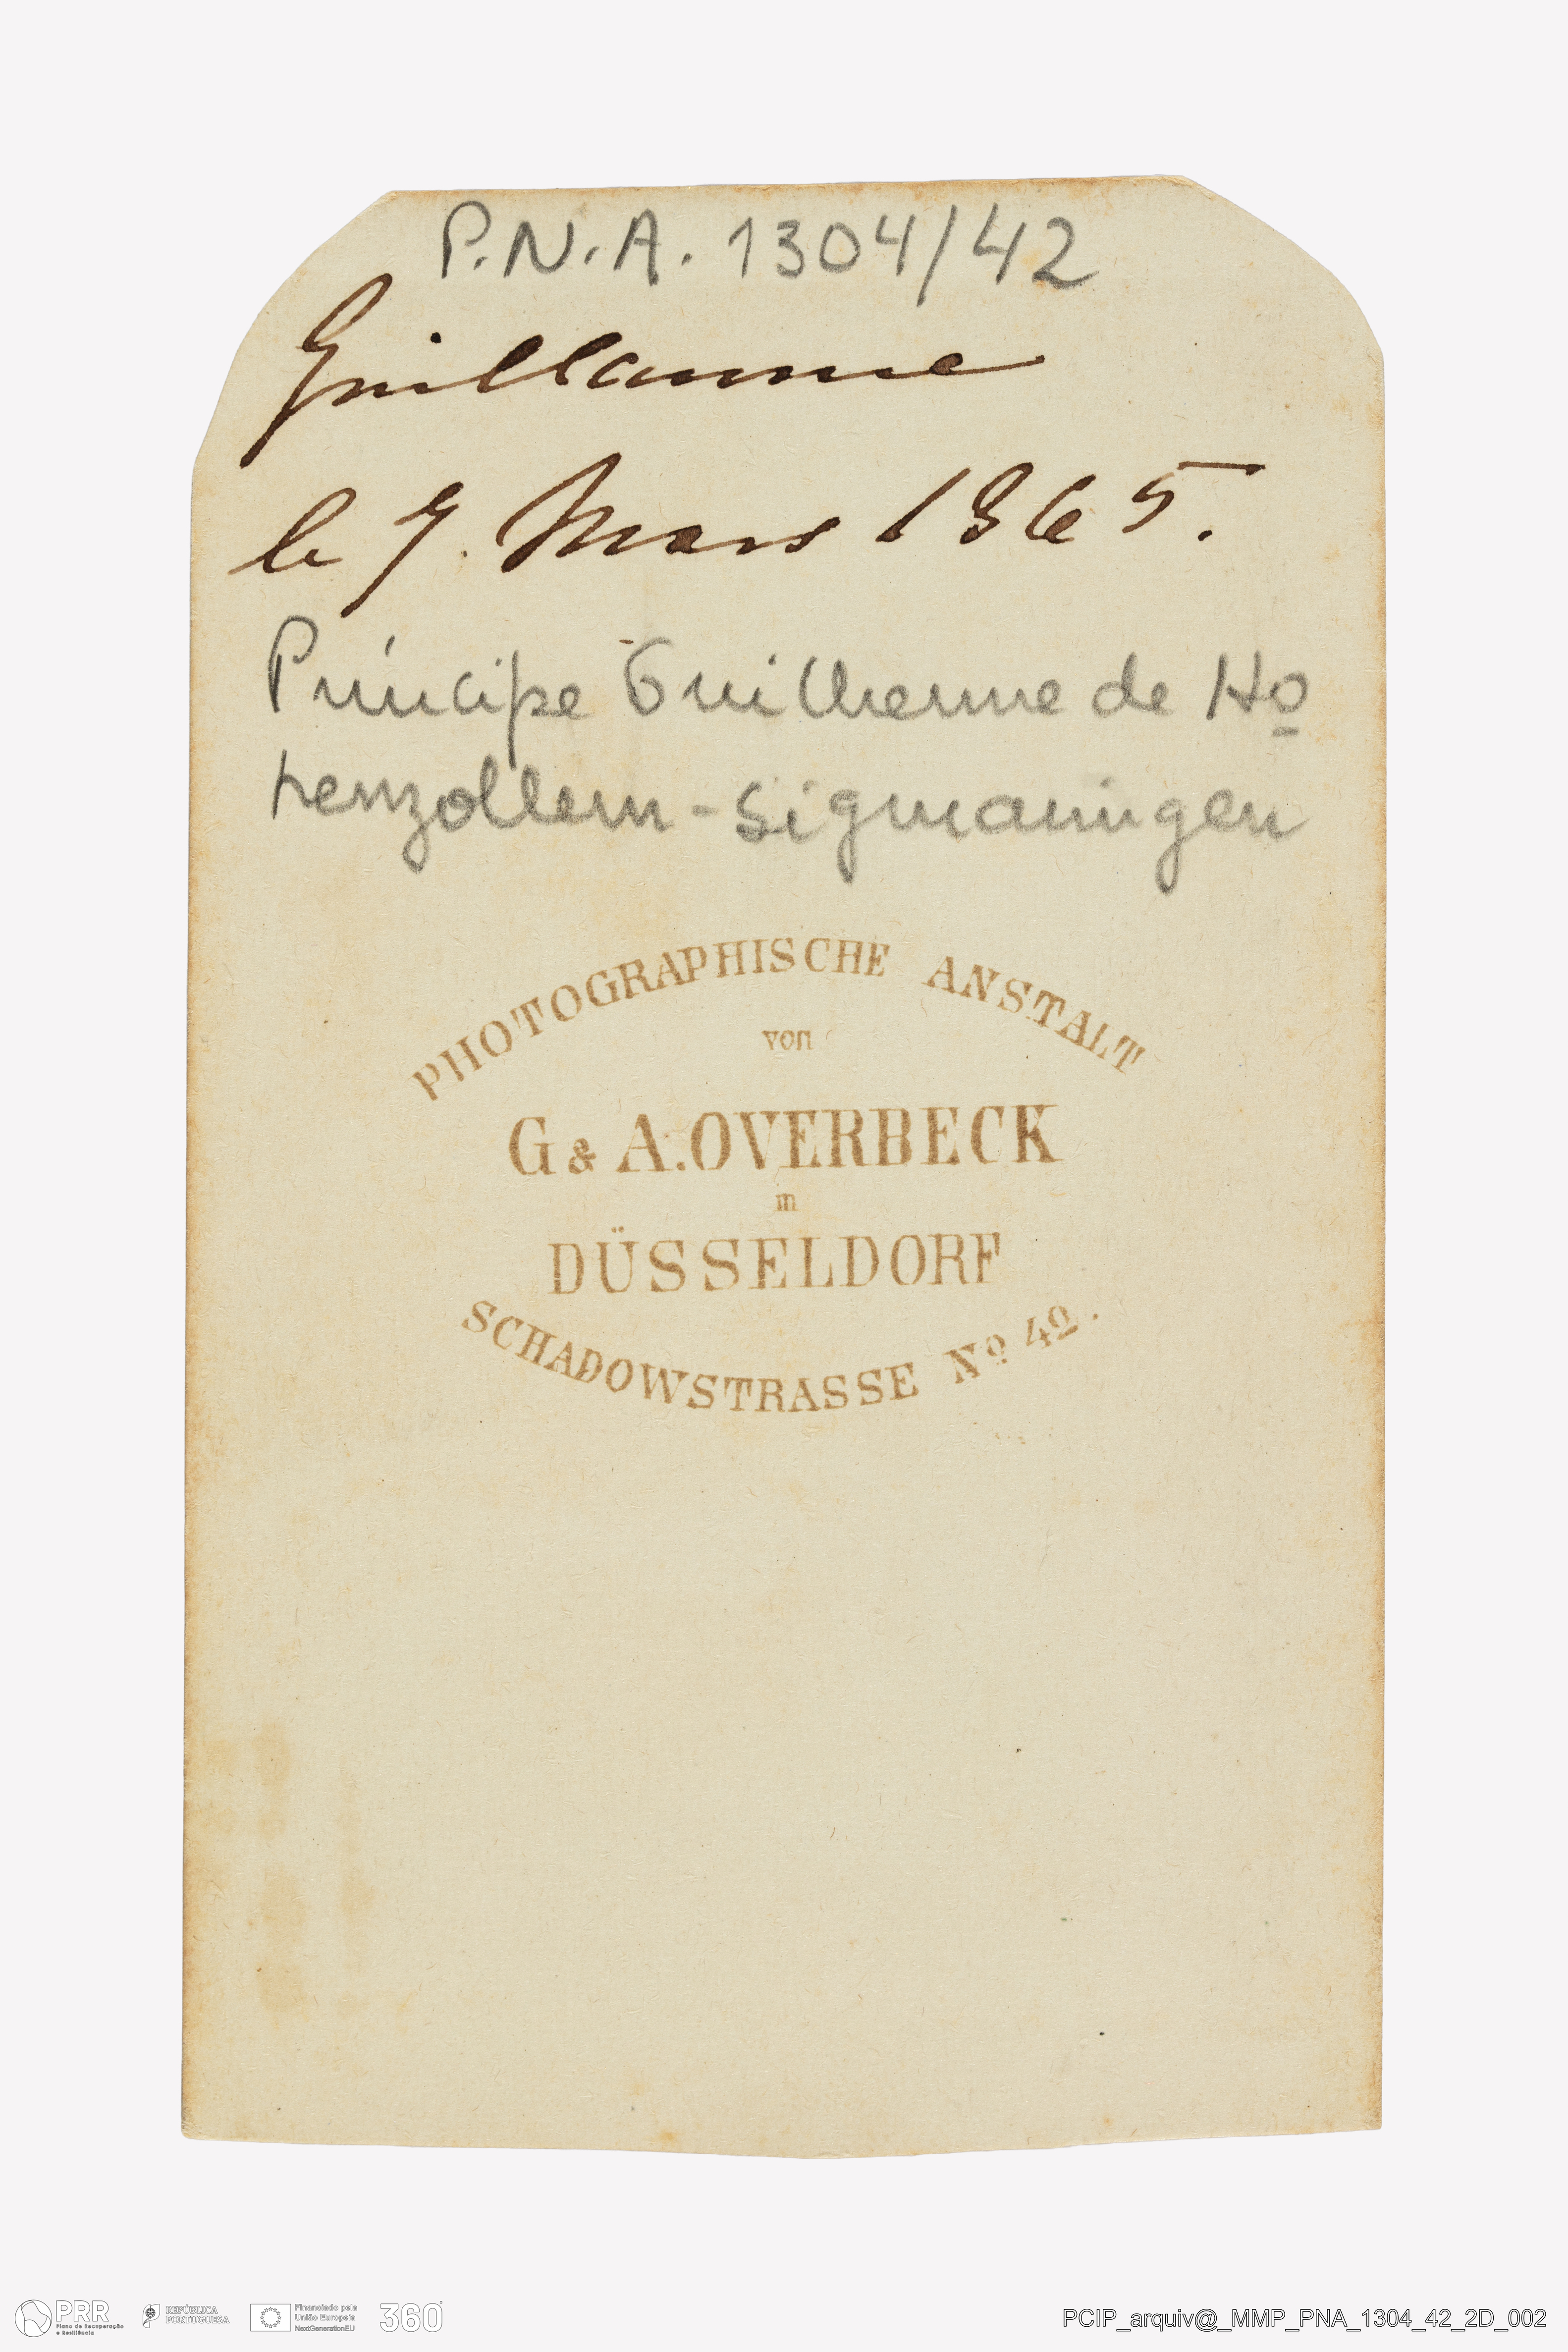 P.N.A. 1304/42
Guillaume
le 7. Mars 1865.
Príncipe Guilherme de Ho
henzollern-Sigmaringen
PHOTOGRAPHISCHE ANSTALT
von
G & A. OVERBECK
in
DÜSSELDORF
SCHADOWSTRASSE No 42.
PRR
Plano de Recuperação
e Resiliência
REPÚBLICA
PORTUGUESA
Financiado pela
União Europeia
NextGenerationEU
360°
PCIP_arquiv@_MMP_PNA_1304_42_2D_002